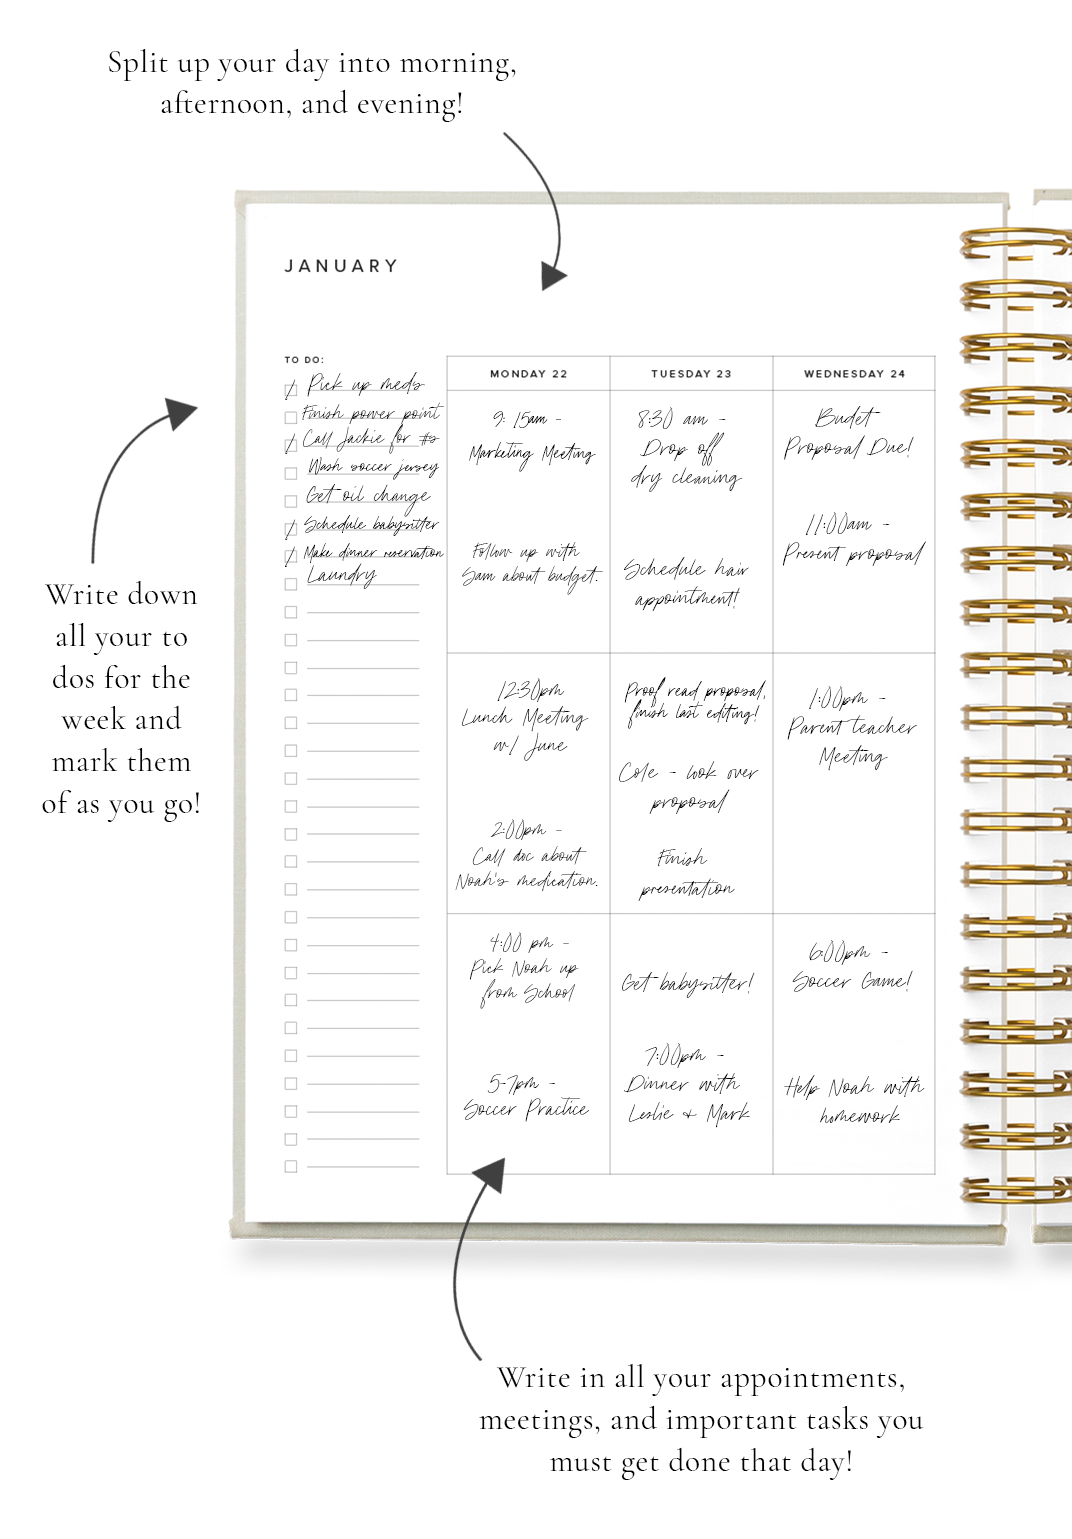 Split up your day into morning,
afternoon, and evening!
JANUARY
TO DO:
Pick up meds
Finish power point
Call Jackie for #s
Wash soccer jersey
Get oil change
Schedule babysitter
Make dinner reservation
Laundry
MONDAY 22
9:15am -
Marketing Meeting
Follow up with
Sam about budget.
12:30pm
Lunch Meeting
w/ June
2:00pm -
Call doc about
Noah's medication.
4:00 pm -
Pick Noah up
from School
5-7pm -
Soccer Practice
TUESDAY 23
8:30 am -
Drop off
dry cleaning
Schedule hair
appointment!
Proof read proposal,
finish last editing!
Cole - look over
proposal
Finish
presentation
Get babysitter!
7:00pm -
Dinner with
Leslie + Mark
WEDNESDAY 24
Budet
Proposal Due!
11:00am -
Present proposal
1:00pm -
Parent teacher
Meeting
6:00pm -
Soccer Game!
Help Noah with
homework
Write down
all your to
dos for the
week and
mark them
of as you go!
Write in all your appointments,
meetings, and important tasks you
must get done that day!